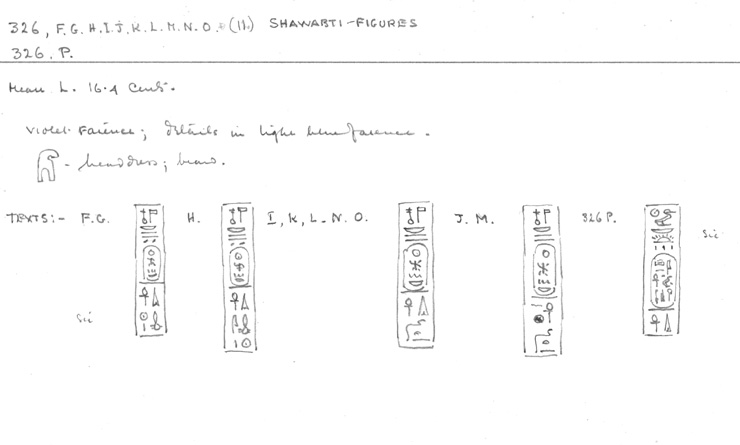 326, F. G. H. I. J. K. L. M. N. O. (11.) SHAWABTI-FIGURES
326. P.
Mean L. 16.4 Cent.
Violet Faience; details in light blue faience.
- headdress; beard.
TEXTS:- F.G. H. I, K, L. N. O. J. M. 326 P. Sic
Sic